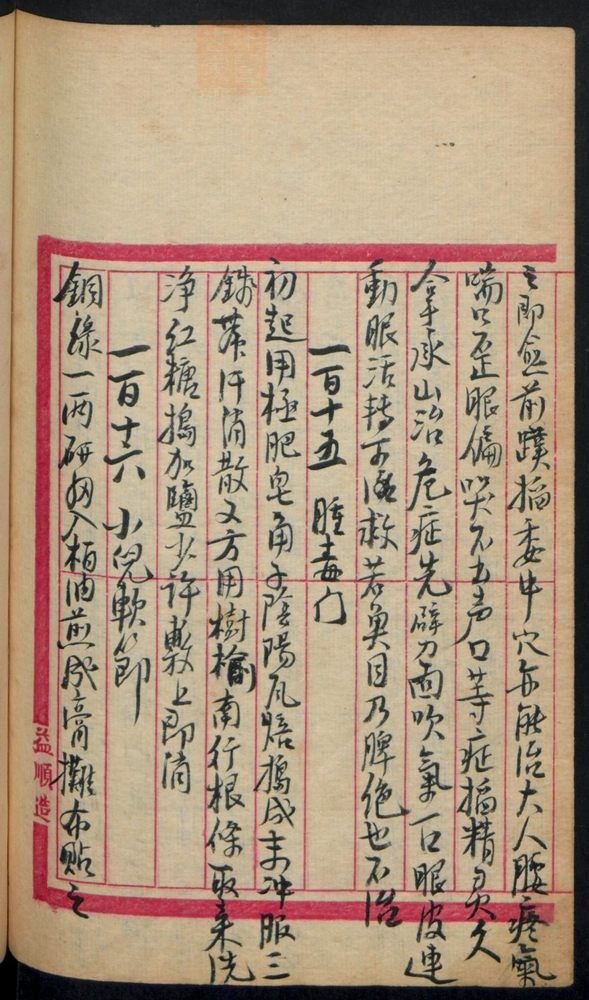 之即愈前蹼搯委中穴亦能治大人腰疼氣
喘口歪眼偏哭不出声口等症搯精灵久
拿承山治危症先劈刀面吹氣一口眼皮連
動眼活轉可得救若魚目乃脾绝也不治
一百十五 腫毒门
初起用極肥皂角子陰陽瓦焙搗成末冲服三
錢蒂汗消散又方用樹榆南行根條取来洗
浄红糖搗加鹽少许敷上即消
一百十六 小児軟節
銅綠一两研切入柏油煎成膏攤布貼之
益順造